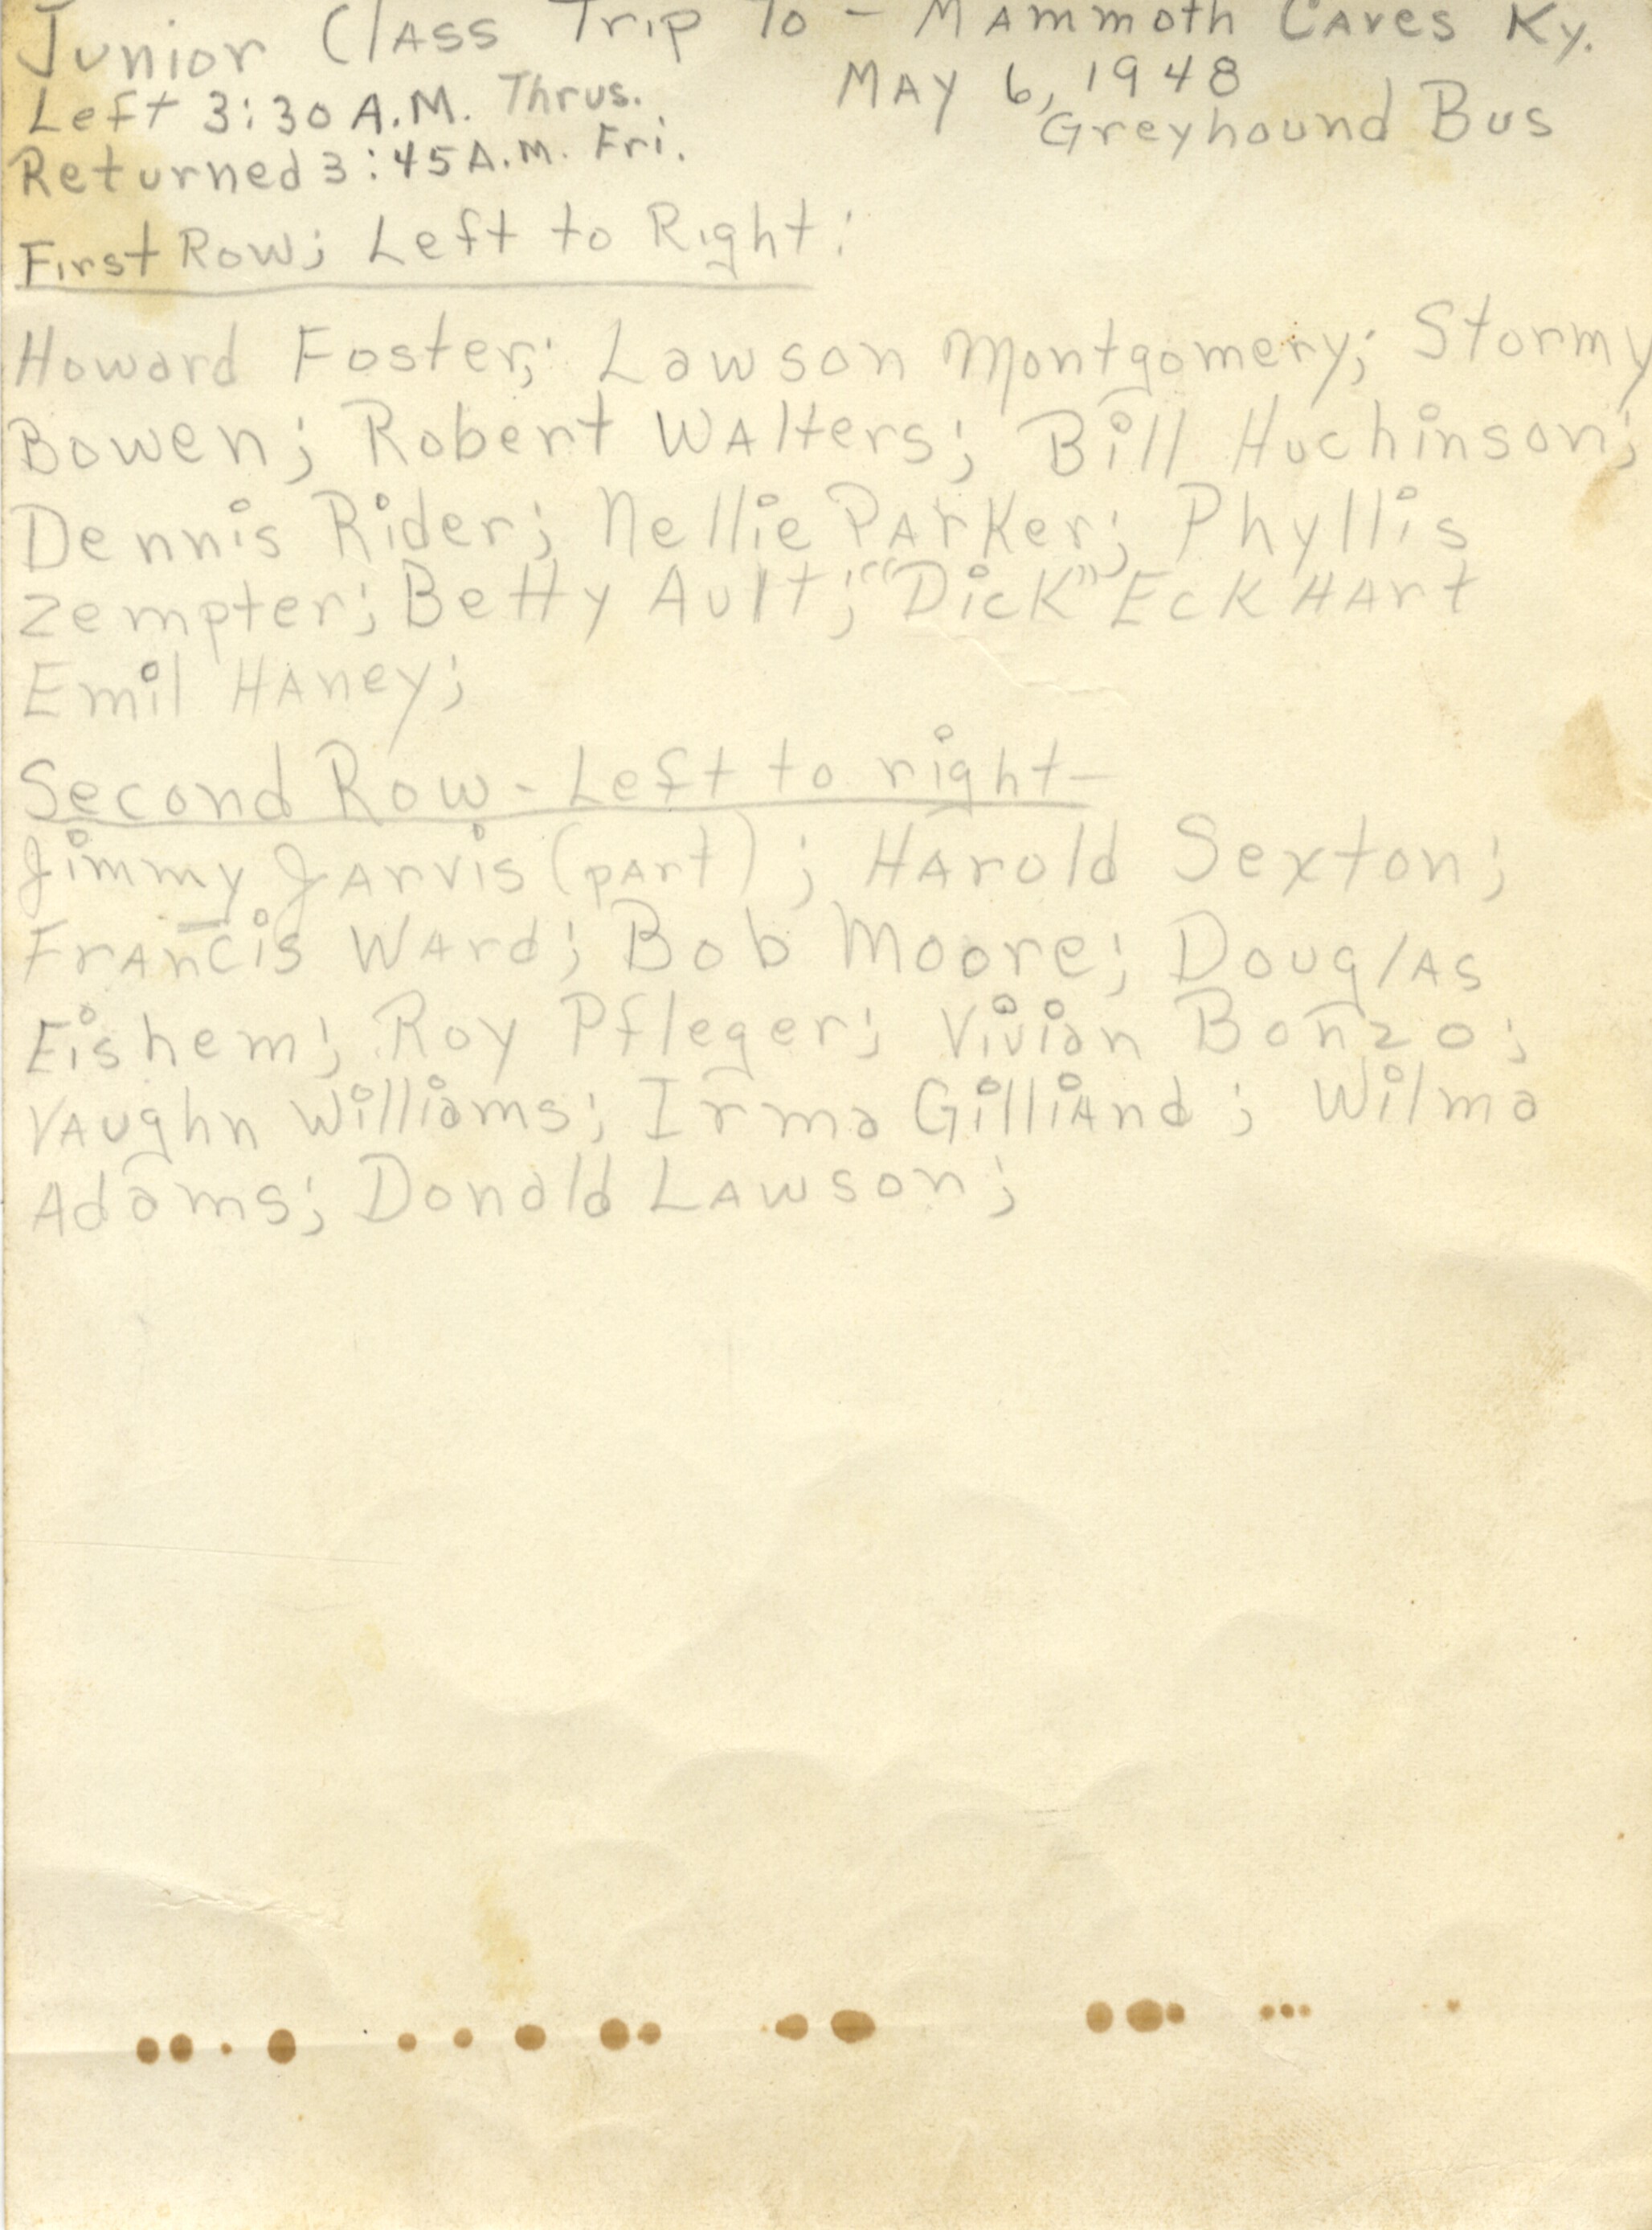 Junior Class Trip To - Mammoth Caves Ky.
Left 3:30 A.M. Thrus. May 6, 1948
Returned 3:45 A.M. Fri. Greyhound Bus
First Row; Left to Right:
Howard Foster; Lawson Montgomery; Stormy
Bowen; Robert Walters; Bill Huchinson;
Dennis Rider; Nellie Parker; Phyllis
Zempter; Betty Ault; "Dick" Eckhart
Emil Haney;
Second Row - Left to right-
Jimmy Jarvis (part); Harold Sexton;
Francis Ward; Bob Moore; Douglas
Eishem; Roy Pfleger; Vivian Bonzo;
Vaughn Williams; Irma Gilliand; Wilma
Adams; Donald Lawson;